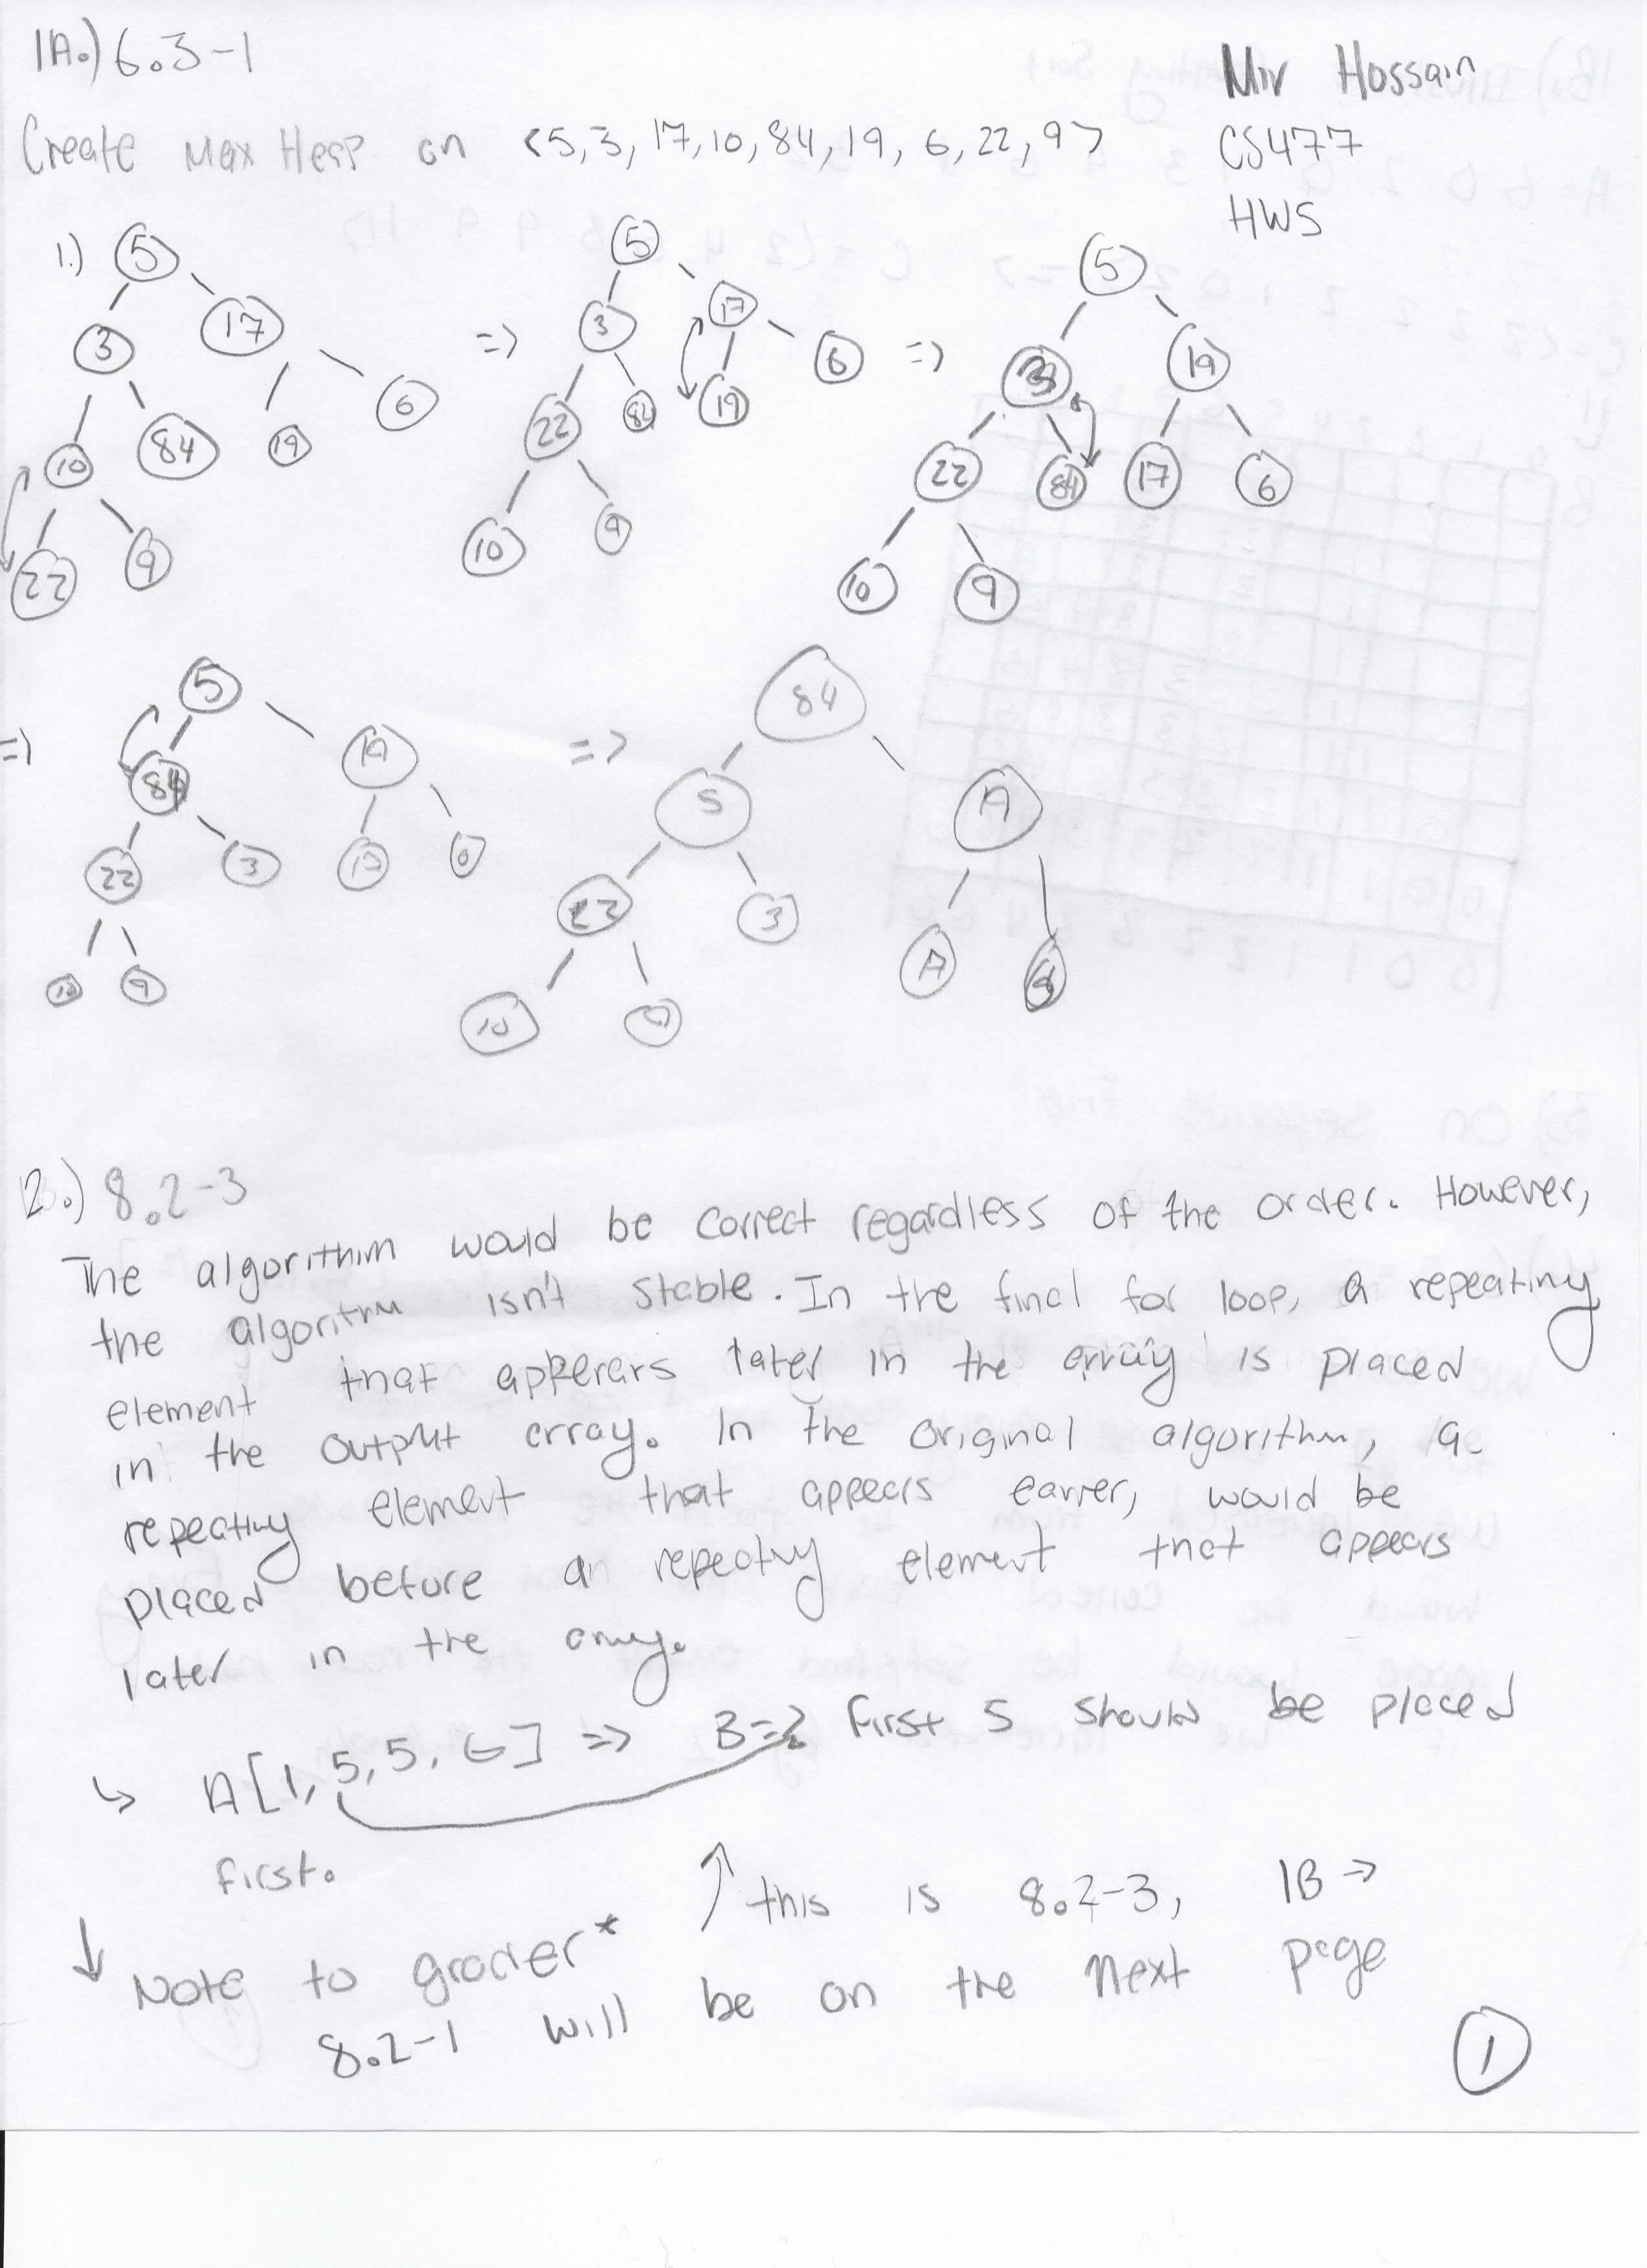 1A.) 6.3-1
Mir Hossain
Create Max Heap on <5,3,17,10,84,19,6,22,9>
CS477
HW5
1.) 5
3 17
10 84 19 6
22 9
=> 5
3 17
22 84 19 6
10 9
=> 5
3 19
22 84 17 6
10 9
=> 5
84 19
22 3 17 6
10 9
=> 84
5 19
22 3 17 6
10 9
2.) 8.2-3
The algorithim would be correct regardless of the order. However,
the algorithm isn't stable. In the final for loop, a repeating
element that apperars later in the array is placed
in the output array. In the original algorithm, a
repeating element that appears earier, would be
placed before an repeating element that appears
later in the array.
↳ A[1,5,5,6] => B=? First 5 should be placed
first.
↑ this is 8.2-3, 1B →
↓ Note to grader*
8.2-1 will be on the next page
1